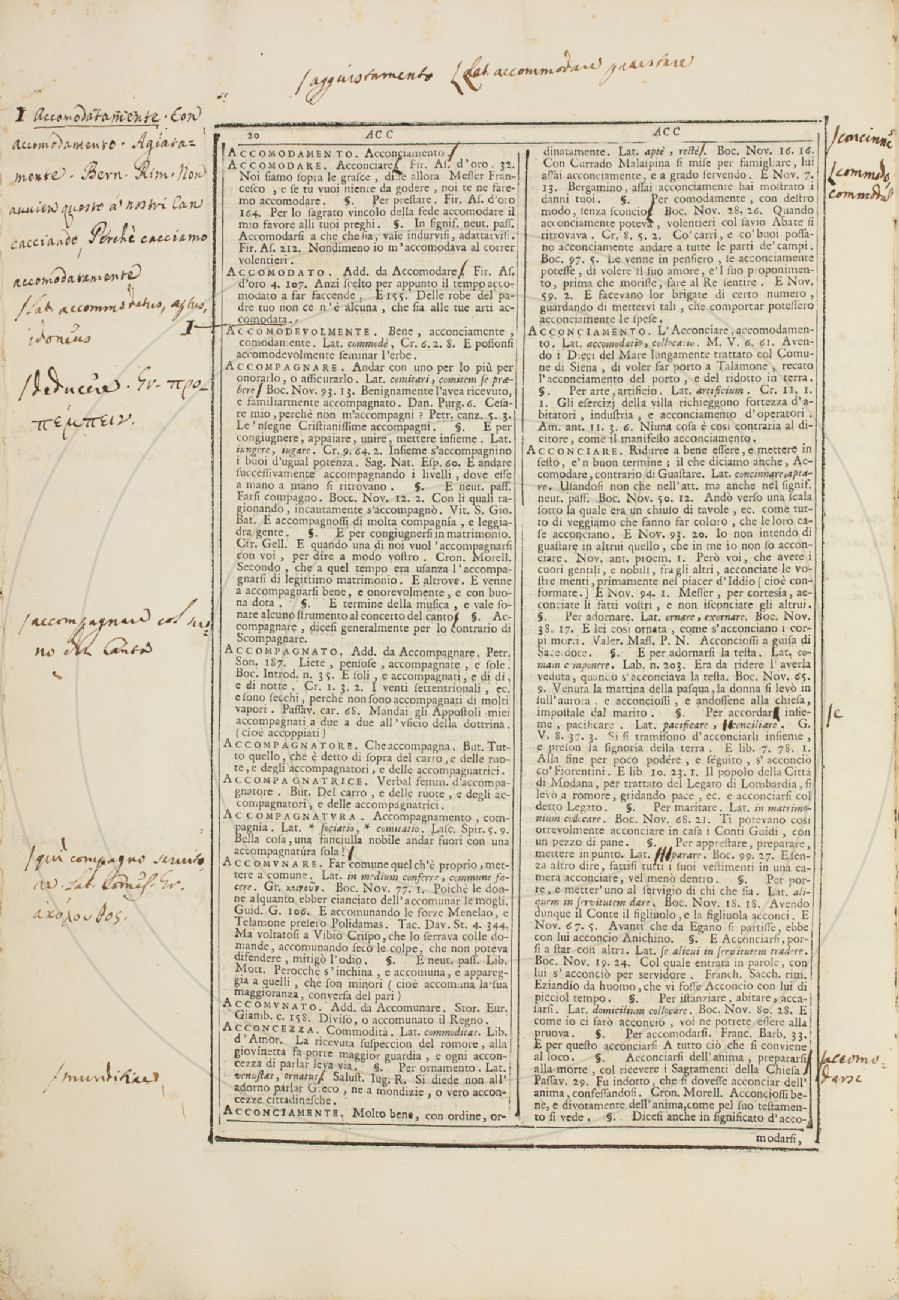 aggiustamento Lat. accommodare praestare
Accomodatamente. Con
accomodamento. Agiata-
mente. Bern. Rim. Non
avvien questo a' nostri Can
cacciando, Perchè cacciamo
accomodatamente
Lat. accommodatus, aptus,
idoneus
deducere. Gr. προ-
πέμπειν.
accompagnare col suo-
no il Canto
qui compagno
re. Lat. Comes. Gr.
ἀκόλουθος.
munditiae
20 ACC
ACCOMODAMENTO. Acconciamento
ACCOMODARE. Acconciare. Fir. As. d'oro. 32.
Noi siamo sopra le grasce, disse allora Messer Fran-
cesco, e se tu vuoi niente da godere, noi te ne fare-
mo accomodare. §. Per prestare. Fir. As. d'oro
164. Per lo sagrato vincolo della fede accomodare il
mio favore alli tuoi preghi. §. In signif. neut. pass.
Accomodarsi a che che sia, vale indursivi, adattarvisi.
Fir. As. 212. Nondimeno io m'accomodava al correr
volentieri.
ACCOMODATO. Add. da Accomodare. Fir. As.
d'oro 4. 107. Anzi scelto per appunto il tempo acco-
modato a far faccende, E 155. Delle robe del pa-
dre tuo non ce n'è alcuna, che sia alle tue arti ac-
comodata.
ACCOMODEVOLMENTE. Bene, acconciamente,
comodamente. Lat. commodè, Cr. 6. 2. 8. E possonsi
accomodevolmente seminar l'erbe.
ACCOMPAGNARE. Andar con uno per lo più per
onorarlo, o assicurarlo. Lat. comitari, comitem se præ-
bere. Boc. Nov. 93. 13. Benignamente l'avea ricevuto,
e familiarmente accompagnato. Dan. Purg. 6. Cesa-
re mio, perchè non m'accompagni? Petr. canz. 5. 3.
Le 'nsegne Cristianissime accompagni. §. E per
congiugnere, appaiare, unire, mettere insieme. Lat.
iungere, iugare. Cr. 9. 64. 2. Insieme s'accompagnino
i buoi d'ugual potenza. Sag. Nat. Esp. 60. E andare
successivamente accompagnando i livelli, dove esse
a mano a mano si ritrovano. §. E neut. pass.
Farsi compagno. Bocc. Nov. 12. 2. Con li quali ra-
gionando, incautamente s'accompagnò. Vit. S. Gio.
Bat. E accompagnossi di molta compagnia, e leggia-
dra gente. §. E per congiugnersi in matrimonio.
Cir. Gell. E quando una di noi vuol 'accompagnarsi
con voi, per dire a modo vostro. Cron. Morell.
Secondo, che a quel tempo era usanza l'accompa-
gnarsi di legittimo matrimonio. E altrove. E venne
a accompagnarsi bene, e onorevolmente, e con buo-
na dota. §. E termine della musica, e vale so-
nare alcuno strumento al concerto del canto. §. Ac-
compagnare, dicesi generalmente per lo contrario di
Scompagnare.
ACCOMPAGNATO. Add. da Accompagnare. Petr.
Son. 187. Liete, pensose, accompagnate, e sole.
Boc. Introd. n. 35. E soli, e accompagnati, e di dì,
e di notte. Cr. 1. 3. 2. I venti settentrionali, ec.
e sono secchi, perchè non sono accompagnati di molti
vapori. Passav. car. 68. Mandai gli Appostoli miei
accompagnati a due a due all'vficio della dottrina.
(cioè accoppiati)
ACCOMPAGNATORE. Che accompagna. But. Tut-
to quello, che è detto di sopra del carro, e delle ruo-
te, e degli accompagnatori, e delle accompagnatrici.
ACCOMPAGNATRICE. Verbal femm. d'accompa-
gnatore. But. Del carro, e delle ruote, e degli ac-
compagnatori, e delle accompagnatrici.
ACCOMPAGNATVRA. Accompagnamento, com-
pagnia. Lat. * sociatio, * comitatio. Lasc. Spir. 5. 9.
Bella cosa, una fanciulla nobile andar fuori con una
accompagnatura sola!
ACCOMVNARE. Far comune quel ch'è proprio, met-
tere a comune. Lat. in medium conferre, commune fa-
cere. Gr. κοινοῦν. Boc. Nov. 77. 1. Poichè le don-
ne alquanto ebber cianciato dell'accomunar le mogli.
Guid. G. 106. E accomunando le forze Menelao, e
Telamone presero Polidamas. Tac. Dav. St. 4. 344.
Ma voltatosi a Vibio Crispo, che lo serrava colle do-
mande, accomunando seco le colpe, che non poteva
difendere, mitigò l'odio. §. E neut. pass. Lib.
Mott. Perocchè s'inchina, e accomuna, e appareg-
gia a quelli, che son minori (cioè accomuna la sua
maggioranza, conversa del pari)
ACCOMVNATO. Add. da Accomunare. Stor. Eur.
Giamb. c. 158. Diviso, o accomunato il Regno.
ACCONCEZZA. Commodità. Lat. commoditas. Lib.
d'Amor. La ricevuta suspeccion del romore, alla
giovinetta fa porre maggior guardia, e ogni accon-
cezza di parlar leva via. §. Per ornamento. Lat.
venustas, ornatus. Salust. Iug. R. Si diede non all'
adorno parlar Gieco, ne a mondizie, o vero accon-
cezze cittadinesche.
ACCONCIAMENTE. Molto bene, con ordine, or-
ACC
dinatamente. Lat. aptè, rectè. Boc. Nov. 16. 16.
Con Currado Malaspina si mise per famigliare, lui
assai acconciamente, e a grado servendo. E Nov. 7.
13. Bergamino, assai acconciamente hai mostrato i
danni tuoi. §. Per comodamente, con destro
modo, senza sconcio. Boc. Nov. 28. 26. Quando
acconciamente poteva, volentieri col savio Abate si
ritrovava. Cr. 8. 5. 2. Co' carri, e co' buoi possa-
no acconciamente andare a tutte le parti de' campi.
Boc. 97. 5. Le venne in pensiero, se acconciamente
potesse, di volere il suo amore, e'l suo proponimen-
to, prima che morisse, fare al Re sentire. E Nov.
59. 2. E facevano lor brigate di certo numero,
guardando di mettervi tali, che comportar potessero
acconciamente le spese.
ACCONCIAMENTO. L'Acconciare, accomodamen-
to. Lat. accomodatio, collocatio. M. V. 6. 61. Aven-
do i Dieci del Mare lungamente trattato col Comu-
ne di Siena, di voler far porto a Talamone, recato
l'acconciamento del porto, e del ridotto in terra.
§. Per arte, artificio. Lat. artificium. Cr. 11. 1.
1. Gli esercizj della villa richieggono fortezza d'a-
bitatori, industria, e acconciamento d'operatori.
Am. ant. 11. 3. 6. Niuna cosa è così contraria al di-
citore, come il manifesto acconciamento.
ACCONCIARE. Ridurre a bene essere, e mettere in
sesto, e'n buon termine; il che diciamo anche, Ac-
comodare, contrario di Guastare. Lat. concinnare, apta-
re. Usandosi non che nell'att. ma anche nel signif.
neut. pass. Boc. Nov. 50. 12. Andò verso una scala
sotto la quale era un chiuso di tavole, ec. come tut-
to dì veggiamo che fanno far coloro, che le loro ca-
se acconciano. E Nov. 93. 20. Io non intendo di
guastare in altrui quello, che in me io non so accon-
ciare. Nov. ant. proem. 1. Però voi, che avete i
cuori gentili, e nobili, fra gli altri, acconciate le vo-
stre menti, primamente nel piacer d'Iddio [cioè con-
formate.] E Nov. 94. 1. Messer, per cortesìa, ac-
conciate li fatti vostri, e non isconciate gli altrui.
§. Per adornare. Lat. ornare, exornare. Boc. Nov.
38. 17. E lei così ornata, come s'acconciano i cor-
pi morti. Valer. Mass. P. N. Acconciossi a guisa di
Sacerdote. §. E per adornarsi la testa. Lat. co-
mam componere. Lab. n. 203. Era da ridere l'averla
veduta, quando s'acconciava la testa. Boc. Nov. 65.
9. Venuta la mattina della pasqua, la donna si levò in
sull'aurora, e acconciossi, e andossene alla chiesa,
impostale dal marito. §. Per accordare insie-
me, pacificare. Lat. pacificare, conciliare. G.
V. 8. 37. 3. Si si tramisono d'acconciarli insieme,
e preson la signorìa della terra. E lib. 7. 78. 1.
Alla fine per poco podére, e séguito, s'acconciò
co' Fiorentini. E lib 10. 23. 1. Il popolo della Città
di Modana, per trattato del Legato di Lombardia, si
levò a romore, gridando pace, ec. e acconciarsi col
detto Legato. §. Per maritare. Lat. in matrimo-
nium collocare. Boc. Nov. 68. 21. Ti potevano così
orrevolmente acconciare in casa i Conti Guidi, con
un pezzo di pane. §. Per apprestare, preparare,
mettere in punto. Lat. parare. Boc. 99. 27. E sen-
za altro dire, fattisi tutti i suoi vestimenti in una ca-
mera acconciare, vel menò dentro. §. Per por-
re, e metter'uno al servigio di chi che sia. Lat. ali-
quem in servitutem dare. Boc. Nov. 18. 18. Avendo
dunque il Conte il figliuolo, e la figliuola acconci. E
Nov. 67. 5. Avanti che da Egano si partisse, ebbe
con lui acconcio Anichino. §. E Acconciarsi, por-
si a star con altri. Lat. se alicui in servitutem tradere.
Boc. Nov. 19. 24. Col quale entrata in parole, con
lui s'acconciò per servidore. Franch. Sacch. rim.
Eziandio da huomo, che vi fosse Acconcio con lui di
picciol tempo. §. Per istanziare, abitare, acca-
sarsi. Lat. domicilium collocare. Boc. Nov. 80. 28. E
come io ci sarò acconcio, voi ne potrete essere alla
pruova. §. Per accomodarsi. Franc. Barb. 33.
E per questo acconciarsi A tutto ciò che si conviene
al loco. §. Acconciarsi dell'anima, prepararsi
alla morte, col ricevere i Sagramenti della Chiesa
Passav. 29. Fu indotto, che si dovesse acconciar dell'
anima, confessandosi. Cron. Morell. Acconciossi be-
ne, e divotamente dell'anima, come pel suo testamen-
to si vede. §. Dicesi anche in significato d'acco-
modarsi,
concinnè
commodè
commodè
se
accomo-
darsi